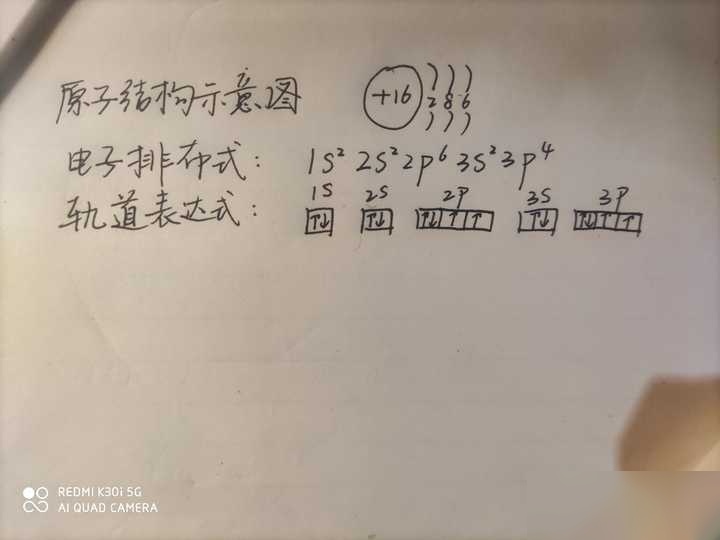 原子结构示意图 +16 2 8 6
电子排布式: 1s² 2s² 2p⁶ 3s² 3p⁴
1s 2s 2p 3s 3p
轨道表达式: ↑↓ ↑↓ ↑↓ ↑ ↑ ↑↓ ↑↓ ↑ ↑
REDMI K30i 5G
AI QUAD CAMERA